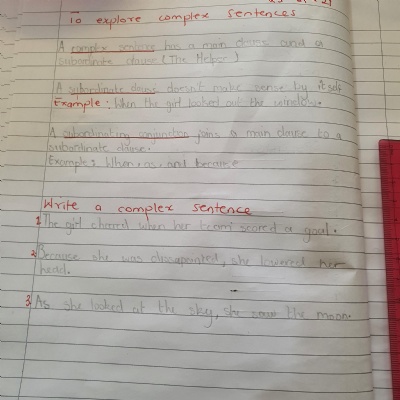 To explore complex sentences
A complex sentence has a main clause and a
subordinate clause (The Helper)
A subordinate clause doesn't make sense by itself
Example: When the girl looked out the window.
A subordinating conjunction joins a main clause to a
subordinate clause.
Example: When, as, and because
Write a complex sentence
1. The girl cheered when her team scored a goal.
2. Because she was disappointed, she lowered her
head.
3. As she looked at the sky, she saw the moon.